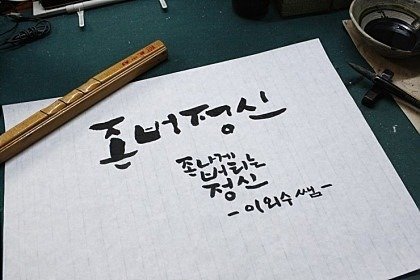 존버정신
존나게
버티는
정신
- 이외수쌤 -